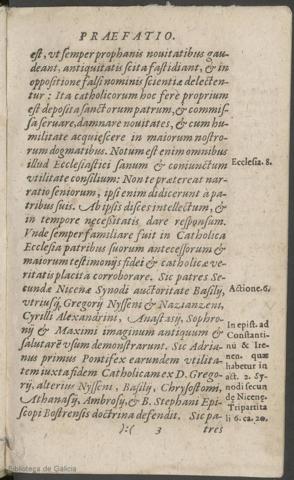 PRAEFATIO.
est, vt semper prophanis nouitatibus gau-
deant, antiquitatis scita fastidiant, & in
oppositione falsi nominis scientiæ delecten-
tur: Ita catholicorum hoc ferè proprium
est deposita sanctorum patrum, & commis-
sa seruare, damnare nouitates, & cum hu-
militate acquiescere in maiorum nostro-
rum dogmatibus. Notum est enim omnibus
illud Ecclesiastici sanum & coniunctum
vtilitate consilium: Non te prætereat nar-
ratio seniorum, ipsi enim didicerunt à pa-
tribus suis. Ab ipsis disces intellectum, &
in tempore necesitatis dare responsum.
Vnde semper familiare fuit in Catholica
Ecclesia patribus suorum antecessorum &
maiorum testimonijs fidei & catholicæ ve-
ritatis placita corroborare. Sic patres Se-
cundæ Nicenæ Synodi auctoritate Basilij,
vtriusq; Gregorij Nysseni & Nazianzeni,
Cyrilli Alexandrini, Anastasij, Sophro-
nij & Maximi imaginum antiquum &
salutarē vsum demonstrarunt. Sic Adria-
nus primus Pontifex earundem vtilita-
tem iuxta fidem Catholicam ex D. Grego-
rij, alterius Nysseni, Basilij, Chrysostomi,
Athanasij, Ambrosij, & B. Stephani Epi-
scopi Bostrensis doctrina defendit. Sic pa-
):( 3 tres
Ecclesia. 8.
Actione. 6.
In epist. ad
Constanti-
nū & Ire-
nen. quæ
habetur in
act. 2. Sy-
nodi secun
dæ Nicenę.
Tripartita
li 6. ca. 20.
Biblioteca de Galicia